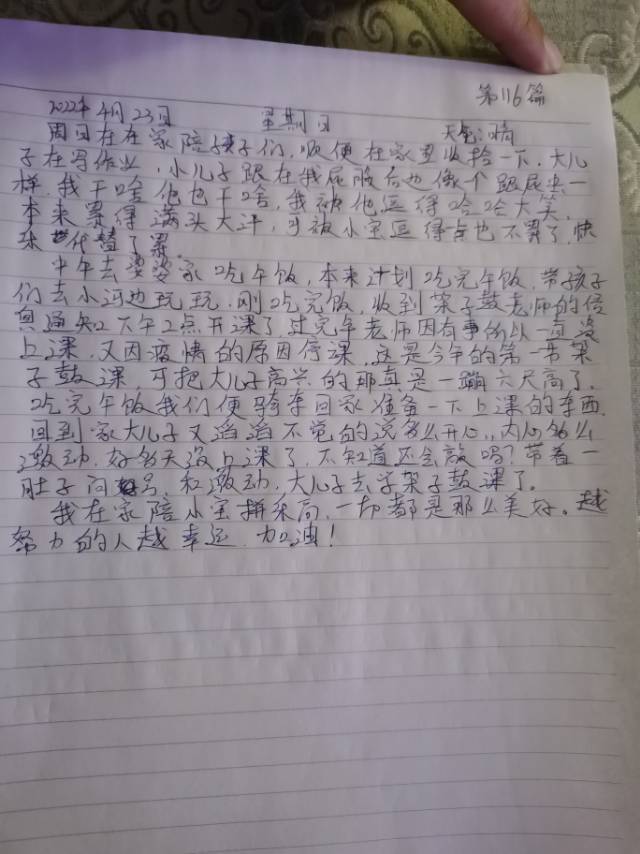 第116篇
2022年4月23日 星期日 天气:晴
周日在在家陪孩子们,顺便在家里收拾一下,大儿
子在写作业,小儿子跟在我屁股后也像个跟屁虫一
样,我干啥他也干啥,我被他逗得哈哈大笑,
本来累得满头大汗,可被小宝逗得点也不累了,快
乐代替了累。
中午去婆婆家吃午饭,本来计划吃完午饭,带孩子
们去小河边玩玩,刚吃完饭,收到架子鼓老师的信
息通知下午2点开课了,过完年老师因有事所以一直没
上课,又因疫情的原因停课,这是今年的第一节架
子鼓课,可把大儿子高兴的那真是一蹦六尺高了,
吃完午饭我们便骑车回家准备一下上课的东西,
回到家大儿子又滔滔不觉的说多么开心,内心多么
激动,好多天没上课了,不知道还会敲吗?带着一
肚子问号,和激动,大儿子去学架子鼓课了。
我在家陪小宝拼乐高,一切都是那么美好。越
努力的人越幸运,加油!